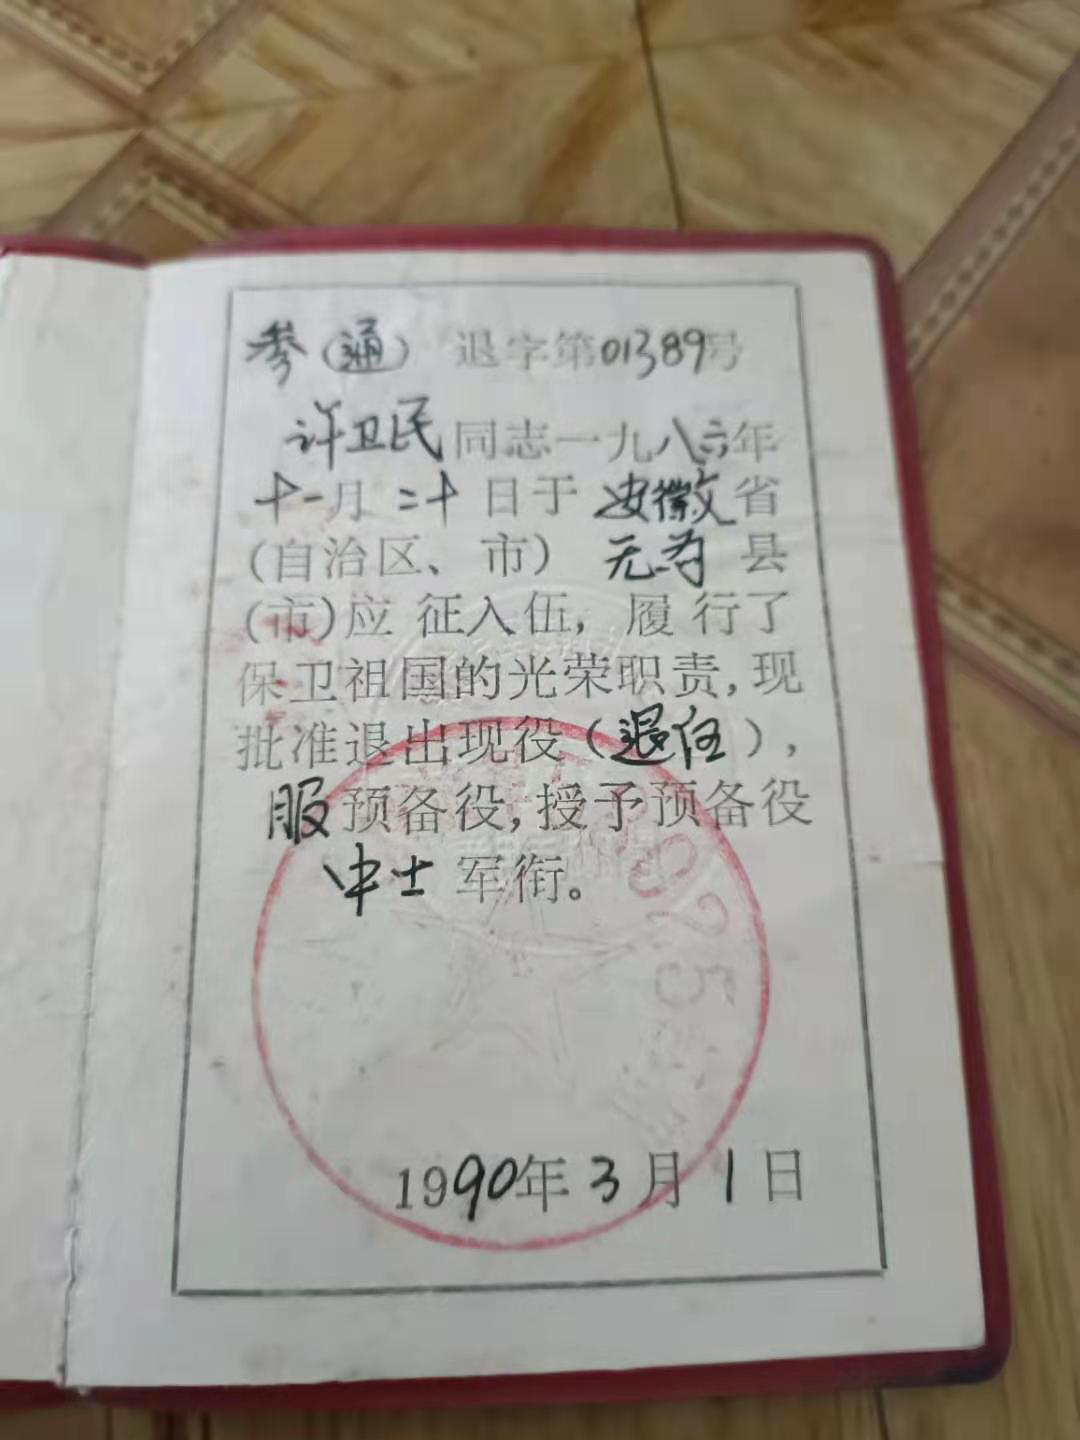 参(通) 退字第01389号
许卫民同志一九八六年
十一月二十日于安徽省
(自治区、市) 无为县
(市)应征入伍，履行了
保卫祖国的光荣职责，现
批准退出现役(退伍)，
服预备役，授予预备役
中士军衔。
1990年3月1日